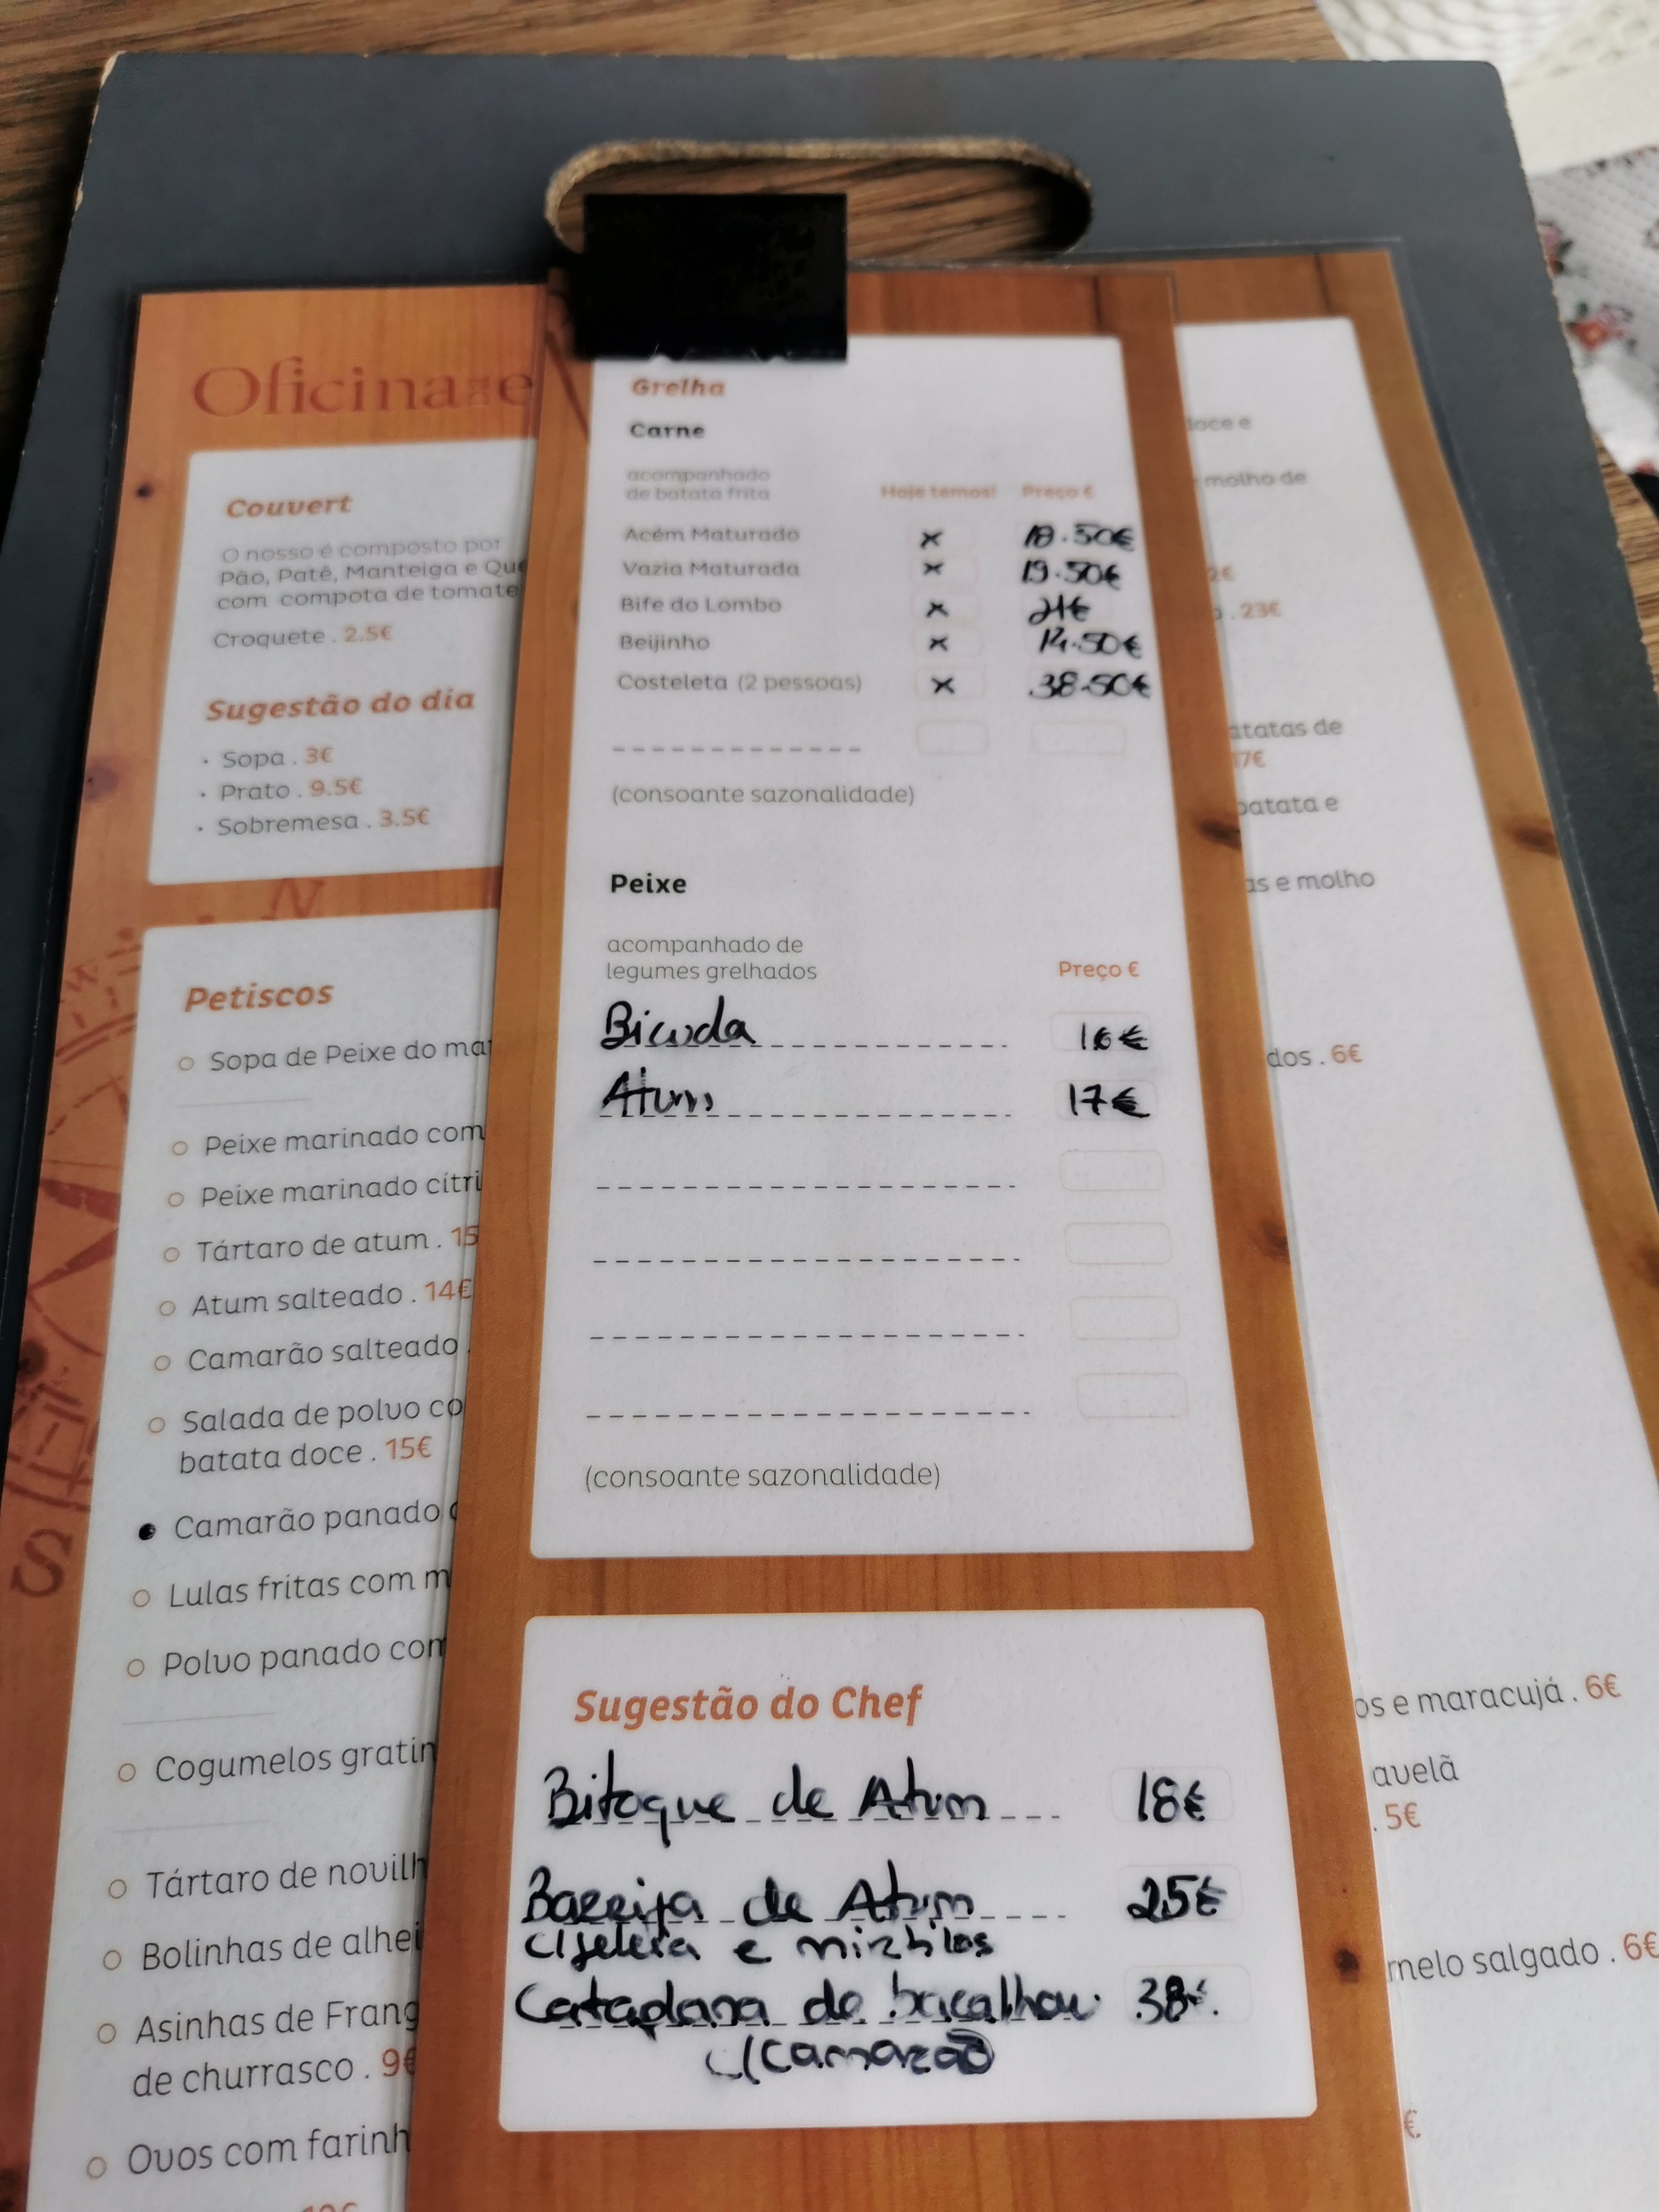 Oficina
Couvert
O nosso é composto por
Pão, Patê, Manteiga e
com compota de tomate
Croquete . 2.5€
Sugestão do dia
· Sopa . 3€
· Prato . 9.5€
· Sobremesa . 3.5€
Petiscos
Sopa de Peixe do
Peixe marinado com
Peixe marinado
Tártaro de atum .
Atum salteado . 14€
Camarão salteado
Salada de polvo
batata doce . 15€
Camarão panado
Lulas fritas com
Polvo panado
Cogumelos
Tártaro de
Bolinhas de
Asinhas de
de churrasco . 9€
Ovos com
Grelha
Carne
acompanhado
de batata frita Hoje temos! Preço €
Acém Maturado x 18.50€
Vazia Maturada x 19.50€
Bife do Lombo x 21€
Beijinho x 14.50€
Costeleta (2 pessoas) x 38.50€
(consoante sazonalidade)
Peixe
acompanhado de
legumes grelhados Preço €
Bicuda 16€
Atum 17€
(consoante sazonalidade)
Sugestão do Chef
Bitoque de Atum 18€
Barriga de Atum 25€
e mirtilos
Cataplana de bacalhau 38€.
c/camarão
doce e
molho de
. 23€
de
17€
batata e
e molho
. 6€
e maracujá . 6€
. 5€
salgado . 6€
€